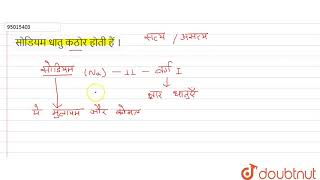 95015403
सोडियम धातु कठोर होती है ।
सत्य / असत्य
सोडियम (Na) - 11 - वर्ग I
क्षार धातुएँ
ये मुलायम और कोमल
doubtnut